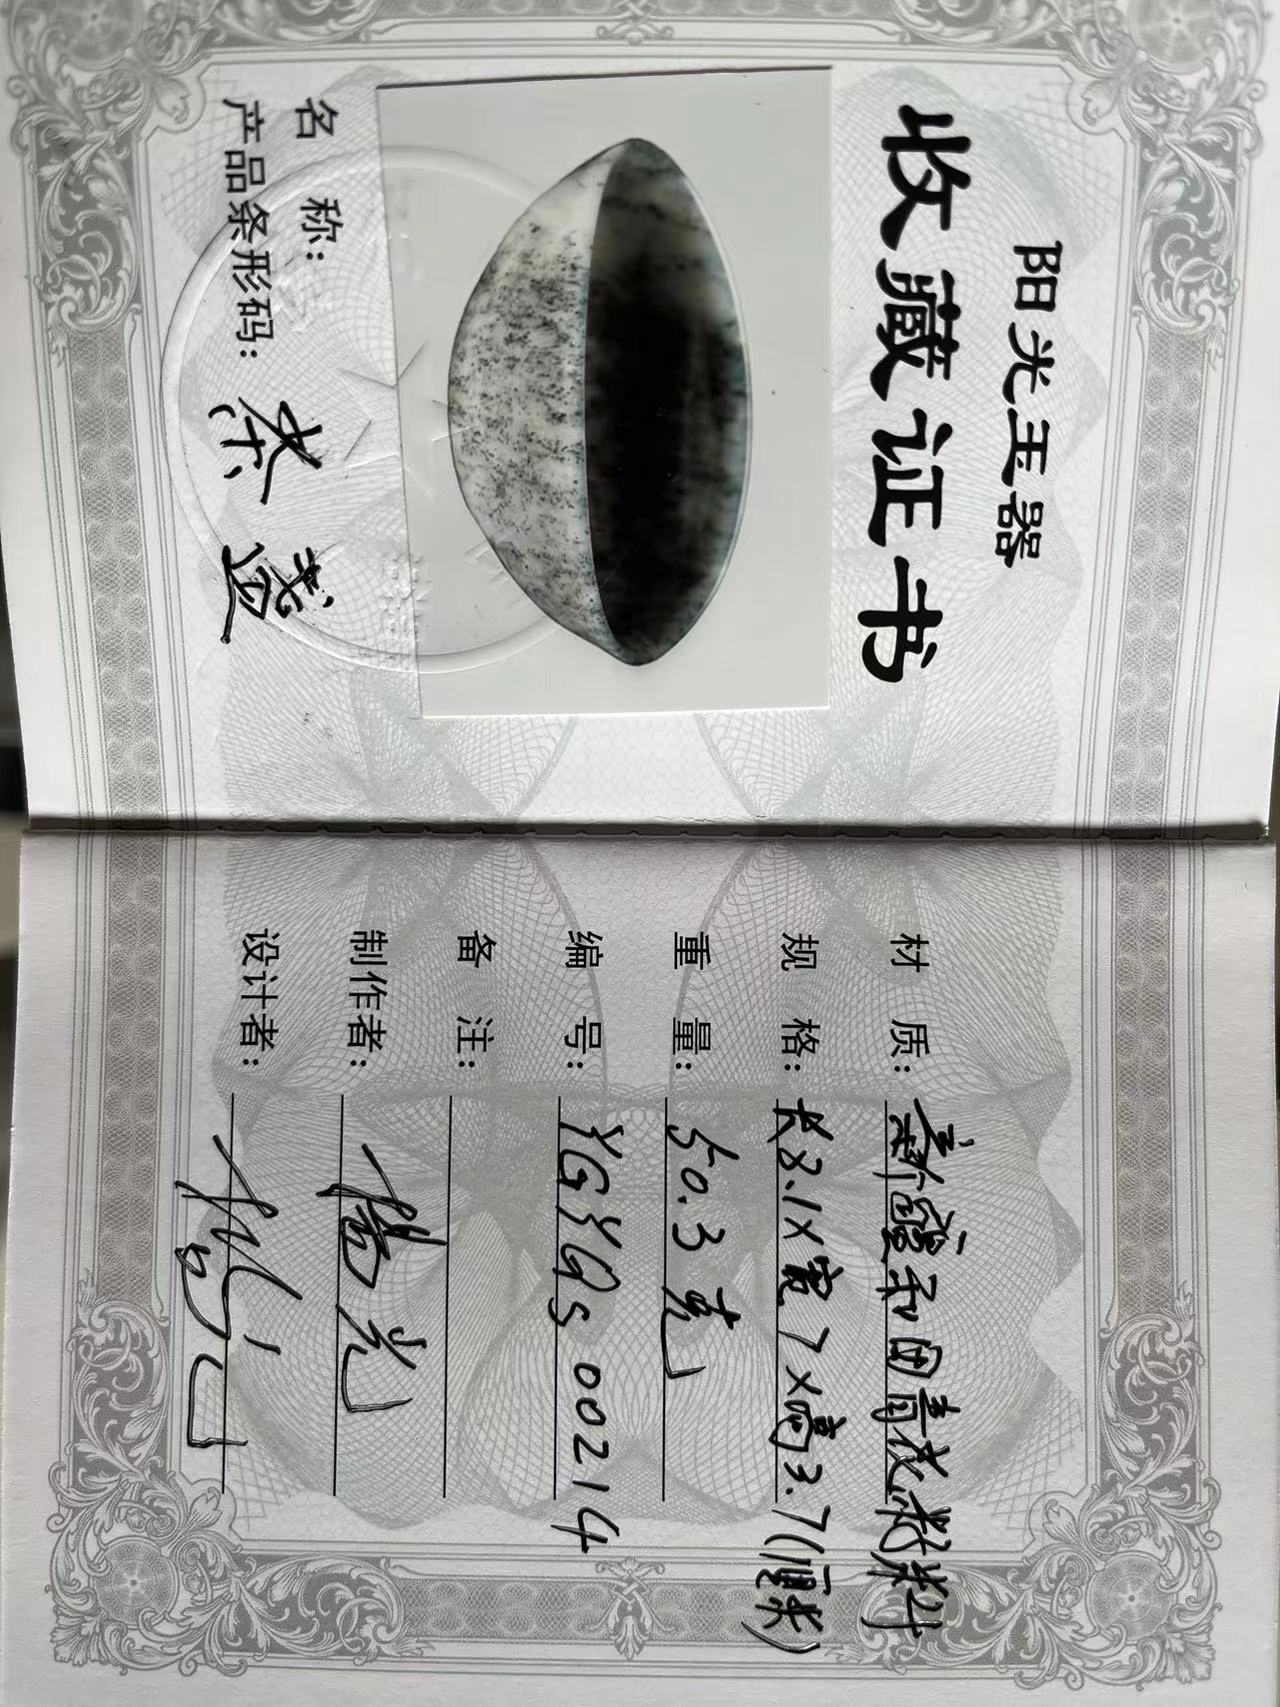 阳光玉器
收藏证书
名 称：
产品条形码：
茶盏
材 质：新疆和田青花籽料
规 格：长8.1X宽7X高3.7(厘米)
重 量：50.3克
编 号：YGYQS00214
备 注：
制作者：杨光
设计者：